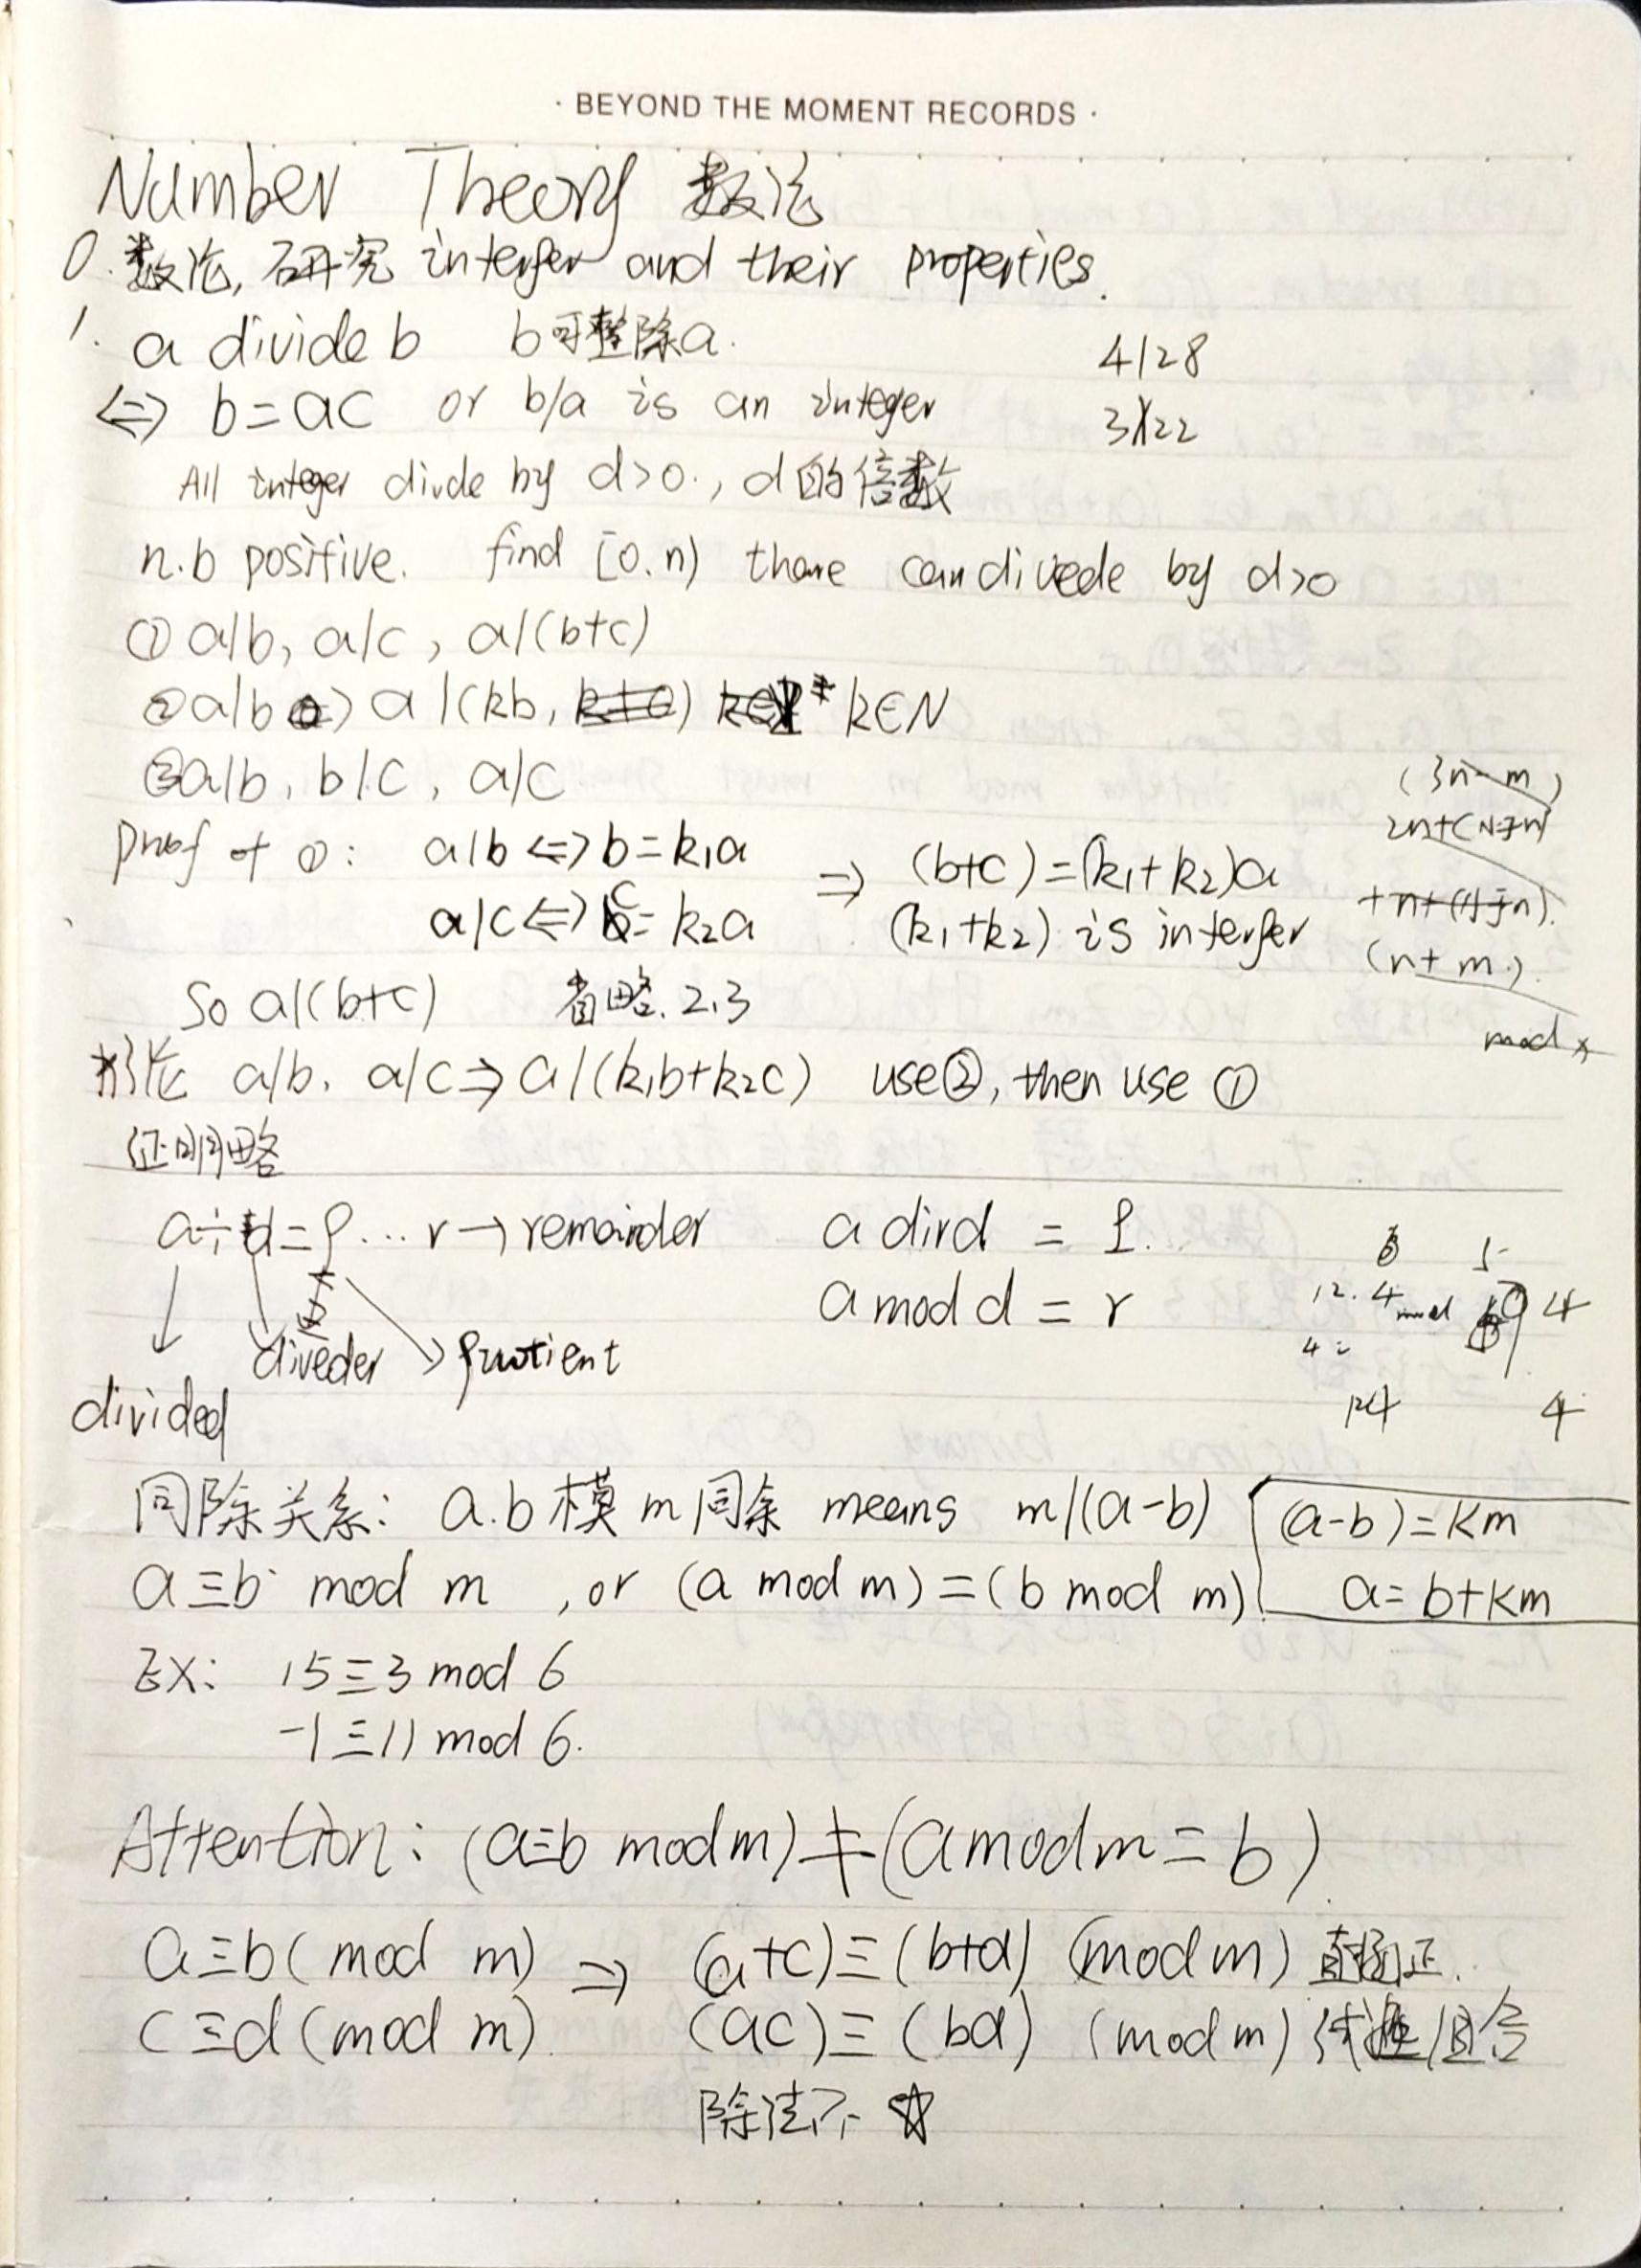 · BEYOND THE MOMENT RECORDS ·
Number Theory 数论
0. 数论, 研究 interfer and their properties.
1. a divide b b可整除a. 4|28
⇔ b=ac or b/a is an integer 3∤22
All integer divde by d>0., d的倍数
n.b positive. find [0.n) thare can divede by d>0
① a|b, a|c, a|(b+c)
② a|b ⇒ a|(kb, k∈N
③ a|b, b|c, a|c
(3n-m)
Proof of ①: a|b ⇔ b=k₁a ⇒ (b+c)=(k₁+k₂)a
a|c ⇔ c=k₂a (k₁+k₂) is interfer
(n+m)
So a|(b+c) 省略.2,3
mod x
推论 a|b, a|c ⇒ a|(k₁b+k₂c) use②, then use ①
证明略
a÷d=q...r→remainder a div d = q.
a mod d = r
diveder quotient
divided
12. 4 mod 4
14 4
同除关系: a.b模m同余 means m|(a-b) (a-b)=km
a≡b mod m , or (a mod m)=(b mod m) a=b+km
EX: 15≡3 mod 6
-1≡11 mod 6.
Attention: (a≡b mod m)≠(a mod m=b).
a≡b(mod m) ⇒ (a+c)≡(b+d) (mod m)
c≡d(mod m) (ac)≡(bd) (mod m) 组合
除法不 ☆